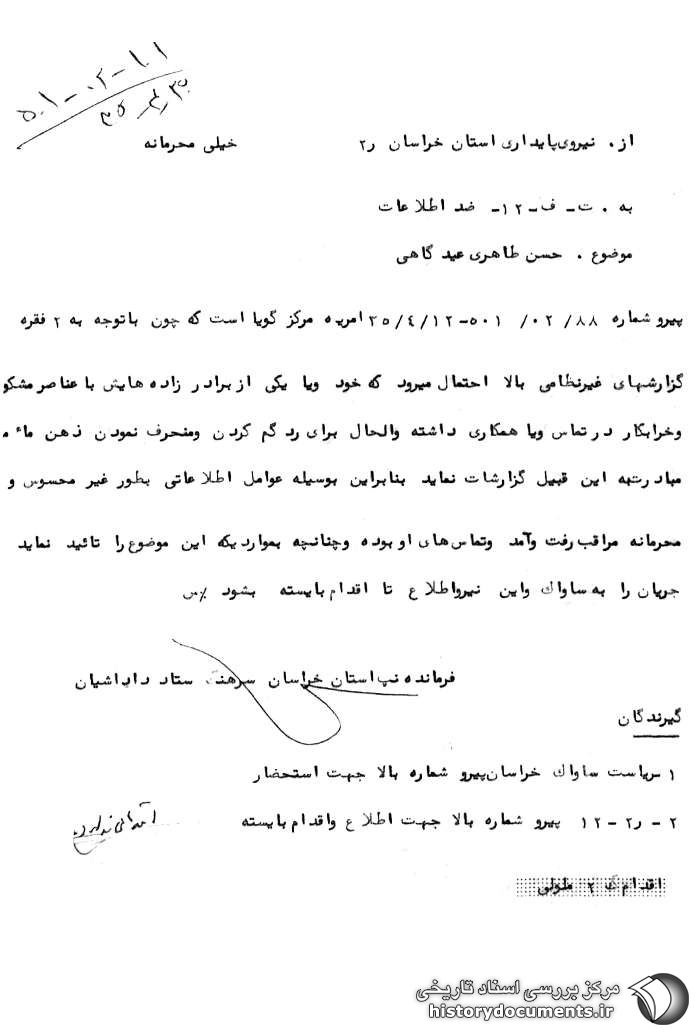 ۵۰۱-۰۲-۱۰۱
۳۵/۴/۳۰
از. نیروی‌پایداری استان خراسان ر۲ خیلی محرمانه
به . ت- ف-۱۲- ضد اطلاعات
موضوع . حسن طاهری عیدگاهی
پیرو شماره ۸۸/ ۰۲/ ۵۰۱-۳۵/٤/۱۲ امریه مرکز گویا است که چون باتوجه به ۲ فقره
گزارشهای غیرنظامی بالا احتمال میرود که خود ویا یکی از برادر زاده هایش با عناصر مشکو
وخرابکار در تماس ویا همکاری داشته والحال برای رد گم کردن ومنحرف نمودن ذهن ماء م
مبادرت‌به این قبیل گزارشات نماید بنابراین بوسیله عوامل اطلاعاتی بطور غیر محسوس و
محرمانه مراقب رفت وآمد وتماس‌های او بوده وچنانچه بمواردیکه این موضوع را تائید نماید
جریان را به ساواك واین نیرواطلاع تا اقدام بایسته بشود ٪س
فرمانده نپ استان خراسان سرهنگ ستاد داداشیان
گیرندگان
۱ سریاست ساواك خراسان‌پیرو شماره بالا جهت استحضار
۲ - ر۲ - ۱۲ پیرو شماره بالا جهت اطلاع واقدام بایسته
اقدامی ندارد
اقدام‌گ ۲ طولی
مرکز بررسی اسناد تاریخی
historydocuments.ir